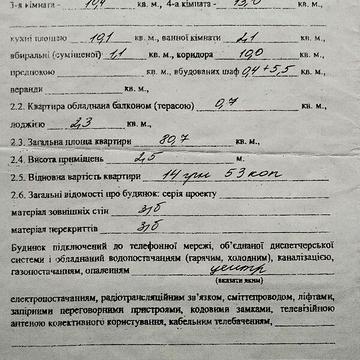 3-я кімната - 10,4 кв. м., 4-а кімната - 13,0 кв. м.,
кухні площею 10,1 кв. м., ванної кімнати 2,1
вбиральні (суміщеної) 1,1 кв. м., коридора 10,0
передпокою кв. м., вбудованих шаф 0,4+5,5
веранди кв. м.,
2.2. Квартира обладнана балконом (терасою) 0,7
лоджією 2,3 кв. м.,
2.3. Загальна площа квартири 80,7 кв. м.,
2.4. Висота приміщень 2,5 м.
2.5. Відновна вартість квартири 14 грн 53 коп
2.6. Загальні відомості про будинок: серія проекту
матеріал зовнішніх стін з/б
матеріал перекриттів з/б
Будинок підключений до телефонної мережі, об'єднаної диспетчерської
системи і обладнаний водопостачанням (гарячим, холодним), каналізацією,
газопостачанням, опаленням центр
(вказати яким)
електропостачанням, радіотрансляційним зв'язком, сміттєпроводом, ліфтами,
запірними переговорними пристроями, кодовими замками, телевізійною
антеною колективного користування, кабельним телебаченням,